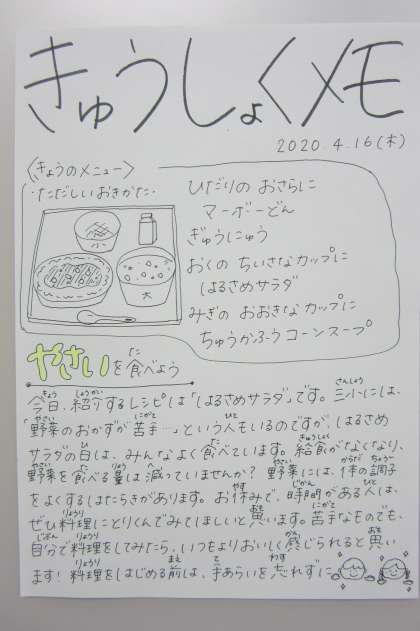 きゅうしょくメモ
2020.4.16(木)
〈きょうのメニュー〉
・ただしいおきかた・
ひだりの おさらに
マーボーどん
ぎゅうにゅう
おくの ちいさなカップに
はるさめサラダ
みぎの おおきな カップに
ちゅうかふう コーンスープ
小
大
やさいを食べよう
今日、紹介するレシピは「はるさめサラダ」です。三小には、
「野菜のおかずが苦手…」という人もいるのですが、はるさめ
サラダの日は、みんなよく食べています。給食がなくなり、
野菜を食べる量は減っていませんか？野菜には、体の調子
をよくするはたらきがあります。お休みで、時間がある人は、
ぜひ料理にとりくんでみてほしいと思います。苦手なものでも、
自分で料理をしてみたら、いつもよりおいしく感じられると思い
ます！料理をはじめる前は、手あらいを忘れずに